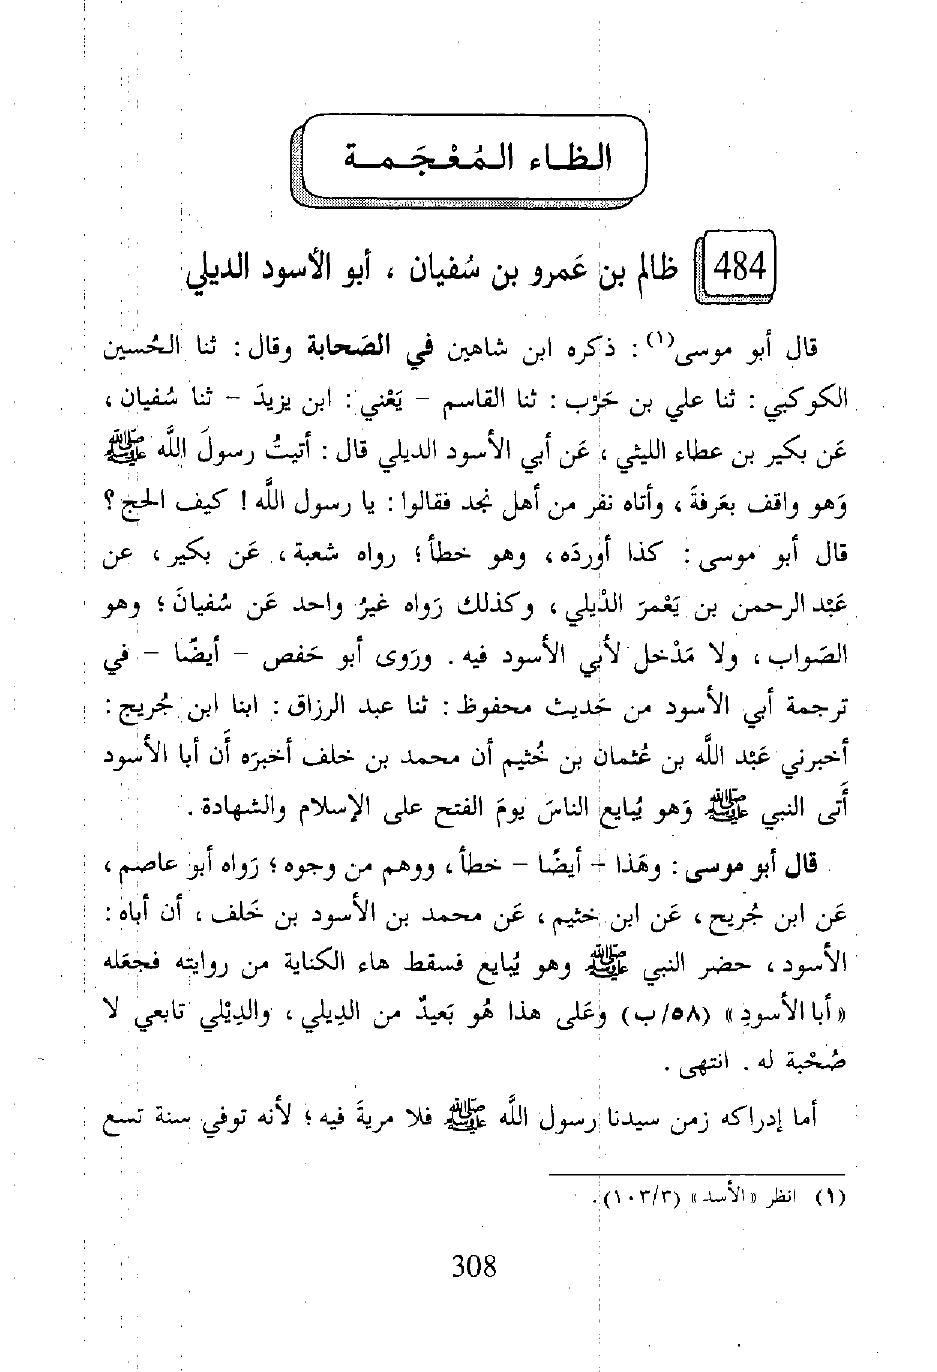 الظاء المُعْجَمة
484 ظالم بن عَمرو بن سُفيان ، أبو الأسود الديلي
قال أبو موسى(١) : ذكره ابن شاهين في الصَحابة وقال : ثنا الحُسين
الكوكبي : ثنا علي بن حَرْب : ثنا القاسم – يَعْني : ابن يزيدَ – ثنا سُفيان ،
عَن بكير بن عطاء الليثي ، عَن أبي الأسود الديلي قال : أتيتُ رسولَ اللَّه ﷺ
وَهو واقف بعَرفةَ ، وأتاه نفر من أهل نجد فقالوا : يا رسول اللَّه ! كيف الحج ؟
قال أبو موسى : كذا أوردَه ، وهو خطأ ؛ رواه شعبة ، عَن بكير ، عن
عَبْد الرحمن بن يَعْمرَ الدْيلي ، وكذلك رَواه غيرُ واحد عَن سُفيانَ ؛ وهو
الصَواب ، ولا مَدْخل لأبي الأسود فيه . ورَوى أبو حَفص – أيضًا – في
ترجمة أبي الأسود من حَديث محفوظ : ثنا عبد الرزاق : ابنا ابن جُريج :
أخبرني عَبْد اللَّه بن عُثمان بن خُثيم أن محمد بن خلف أخبرَه أَن أبا الأسود
أَتى النبي ﷺ وَهو يُبايع الناسَ يومَ الفتح على الإسلام والشهادة .
قال أبو موسى : وهَذا – أيضًا – خطأ ، ووهم من وجوه ؛ رَواه أبو عاصم ،
عَن ابن جُريج ، عَن ابن خثيم ، عَن محمد بن الأسود بن خَلف ، أن أباه :
الأسود ، حضر النبي ﷺ وهو يُبايع فسقط هاء الكناية من روايته فجعَله
« أبا الأسودِ » (٥٨/ب) وعَلى هذا هُو بَعيدٌ من الدِيلي ، والدِيْلي تابعي لا
صُحْبة له . انتهى .
أما إدراكه زمن سيدنا رسول اللَّه ﷺ فلا مريةَ فيه ؛ لأنه توفي سنة تسع
(١) انظر « الأسد » (٣/١٠٣) .
308